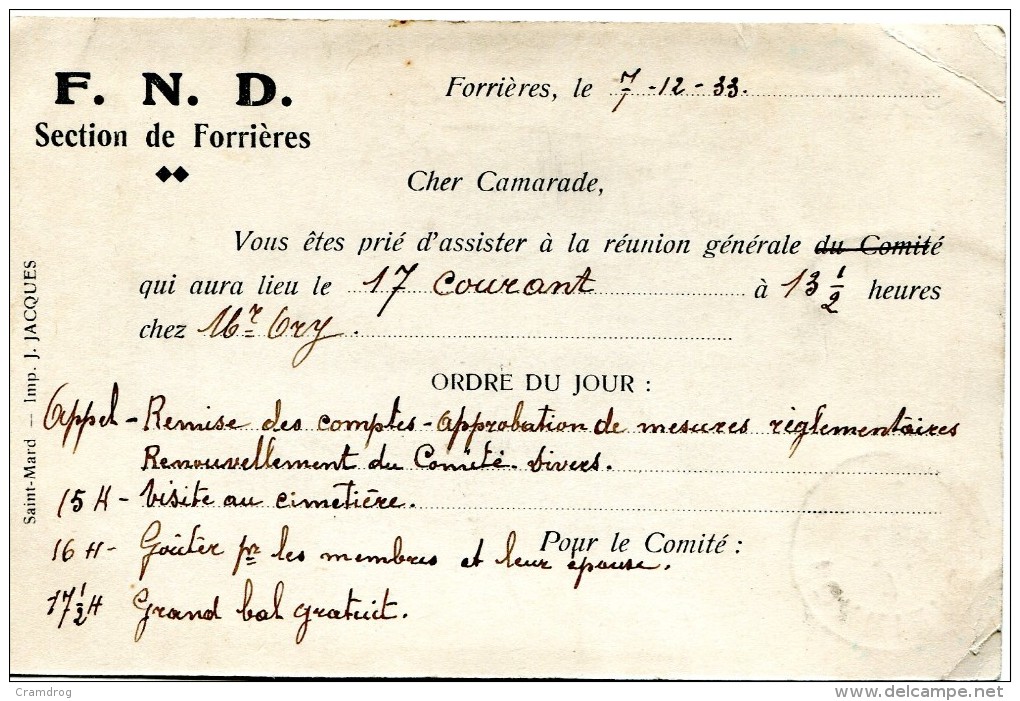 F. N. D.
Section de Forrières
Forrières, le 7-12-33.
Cher Camarade,
Vous êtes prié d'assister à la réunion générale du Comité
qui aura lieu le 17 courant à 13 1/2 heures
chez Mr Ory.
ORDRE DU JOUR :
Appel - Remise des comptes - approbation de mesures règlementaires
Renouvellement du Comité. Divers.
15 H - Visite au cimetière.
Pour le Comité :
16 H - Goûter pr les membres et leur épouse.
17 1/2 H Grand bal gratuit.
Saint-Mard — Imp. J. JACQUES
Cramdrog
www.delcampe.net